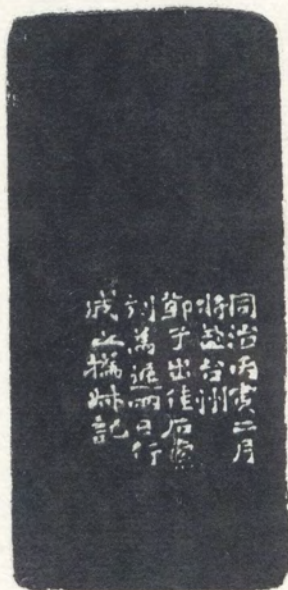 同治丙寅二月
將䢖台州
鄭子出佳石索
刻為遲四日行
成之撝叔記